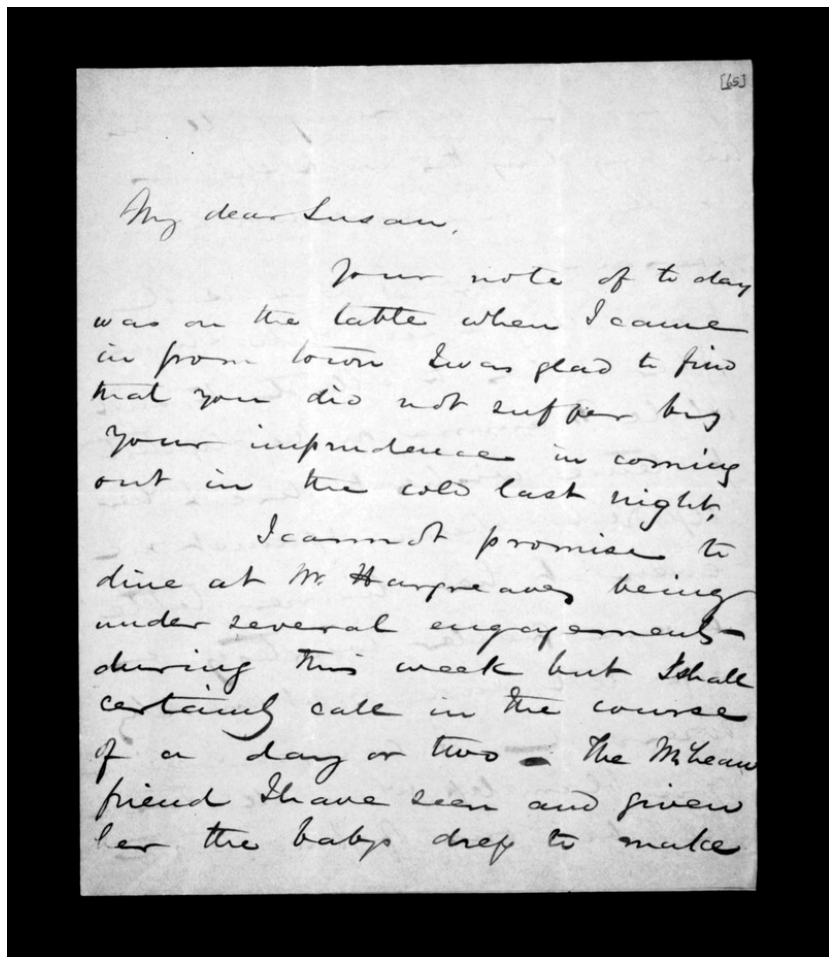 [65]
My dear Susan,
Your note of to day
was on the table when I came
in from town I was glad to find
that you did not suffer by
your imprudence in coming
out in the cold last night,
I cannot promise to
dine at Mr Hargreaves being
under several engagements
during this week but I shall
certainly call in the course
of a day or two – The McLean
friend I have seen and given
her the babys dress to make